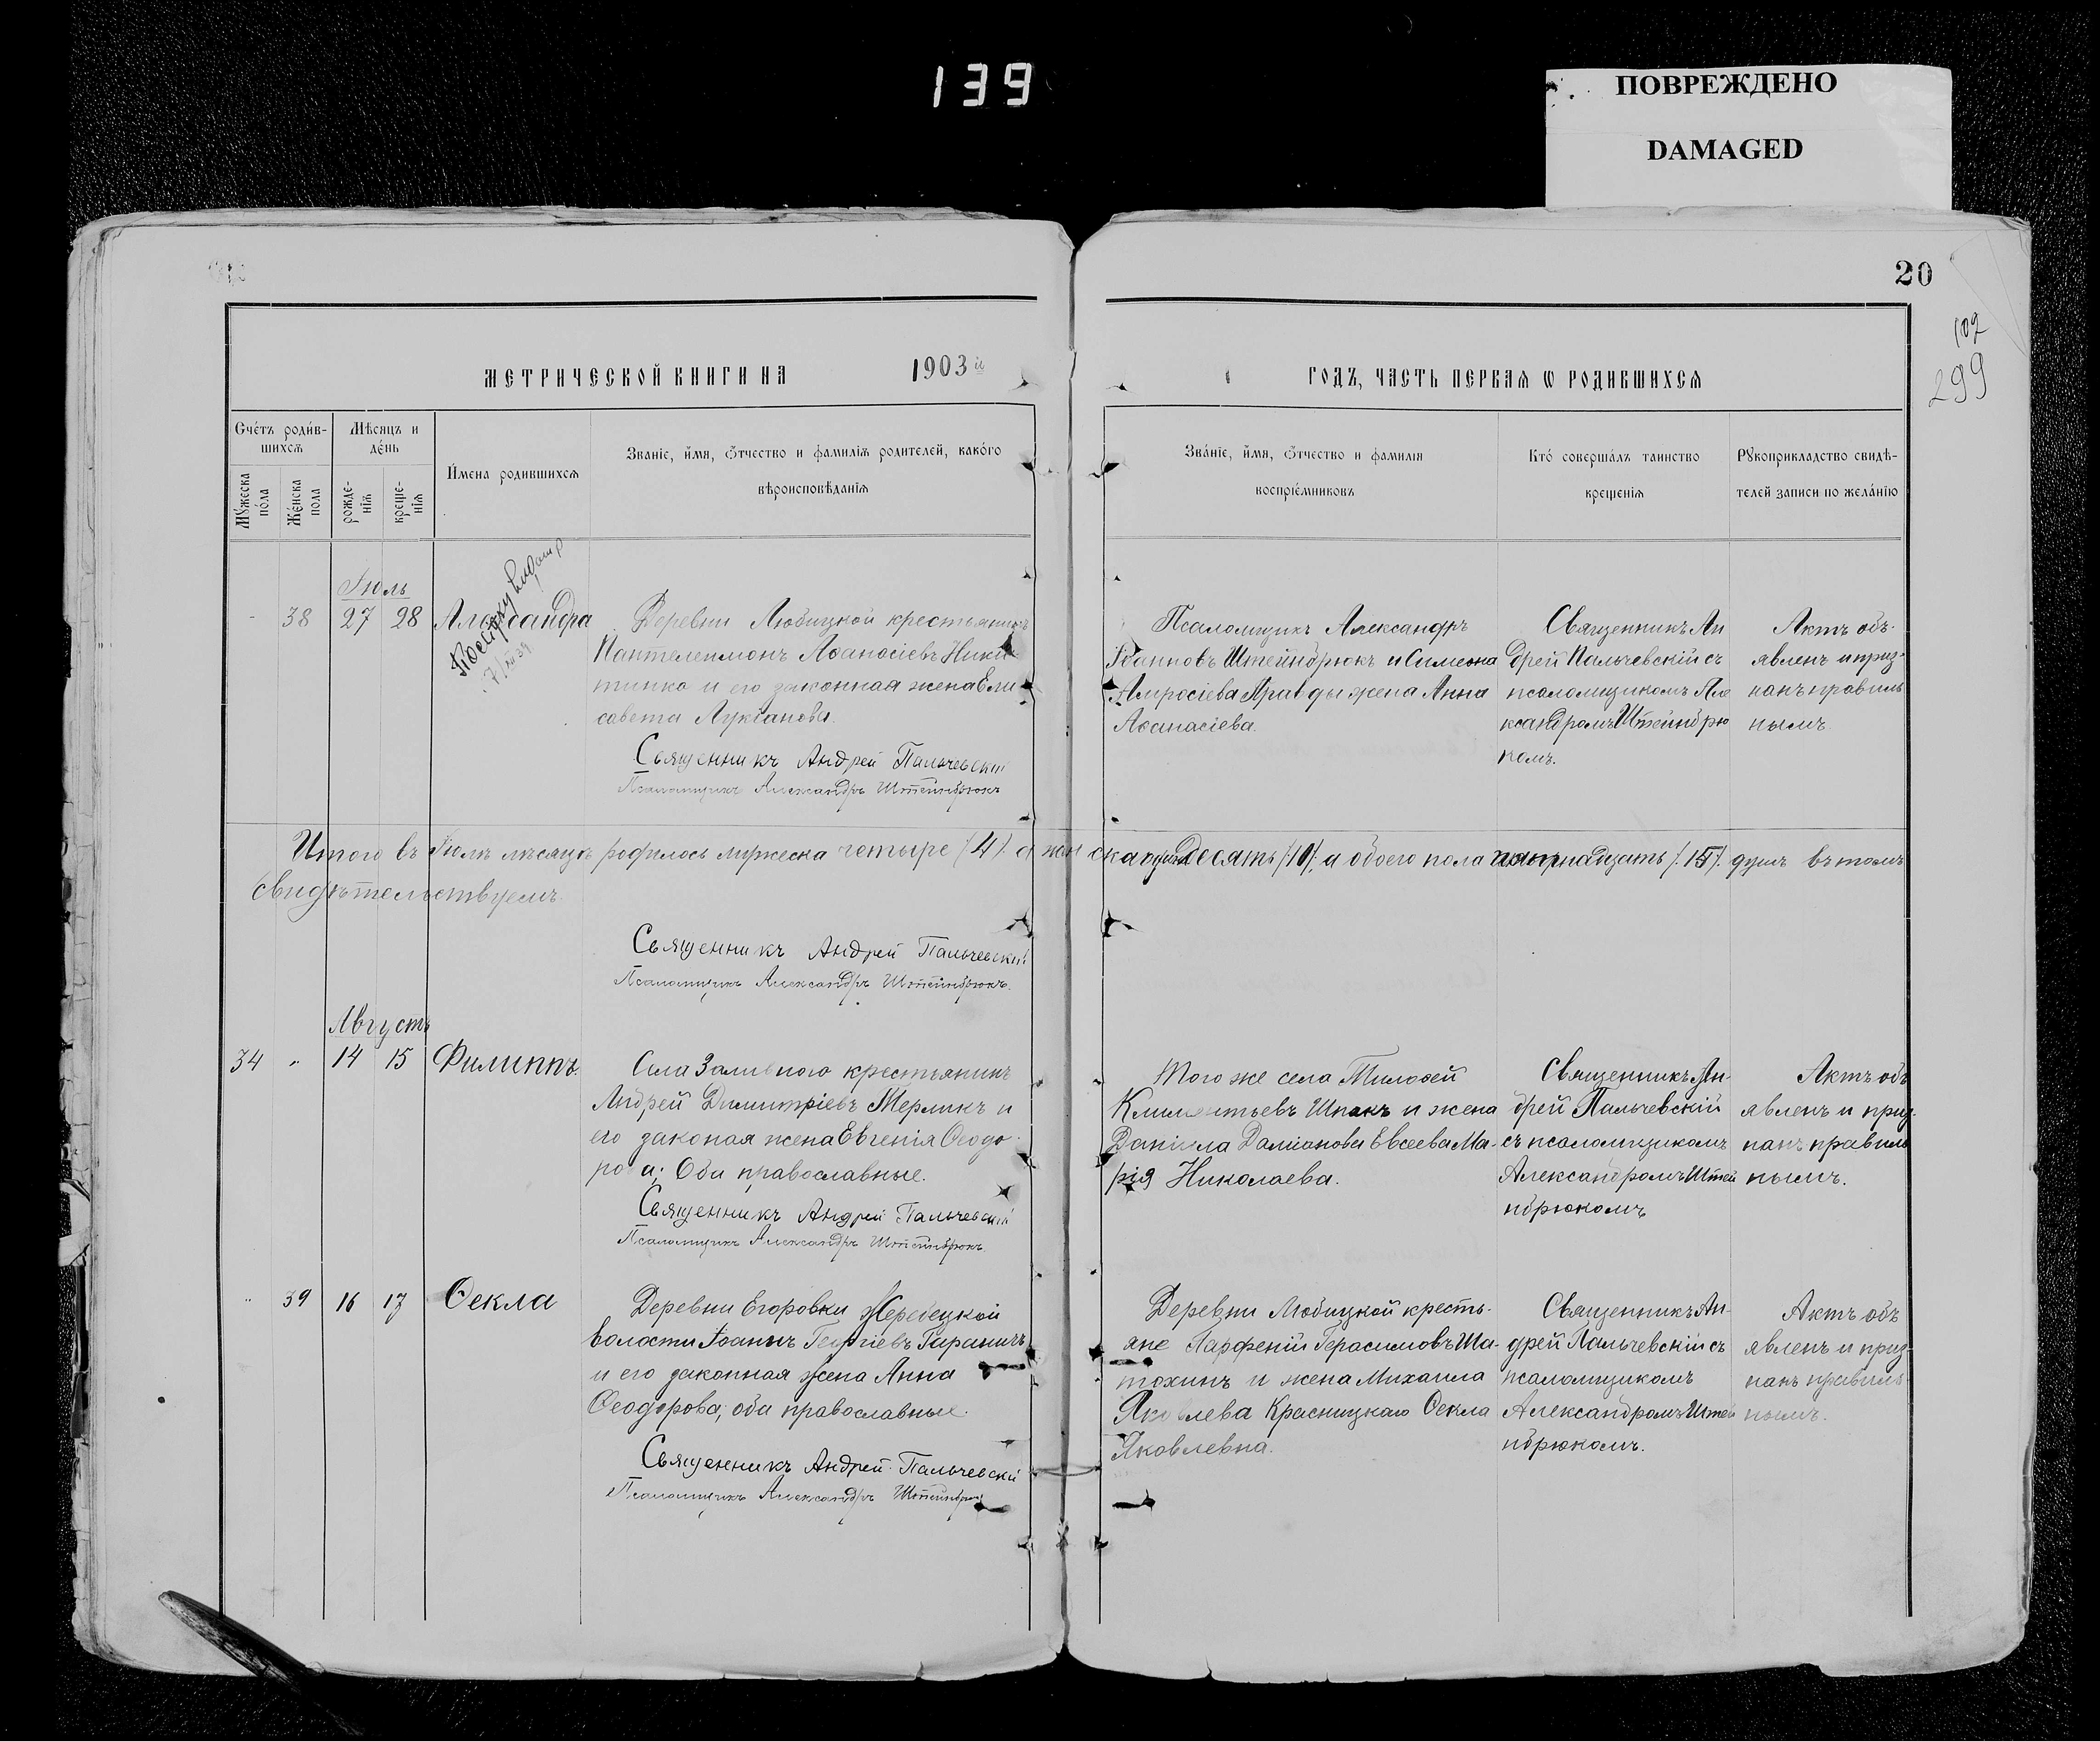 139
ПОВРЕЖДЕНО
DAMAGED
20
102
299
МЕТРИЧЕСКОЙ КНИГИ НА 1903й
ГОДЪ, ЧАСТЬ ПЕРВАЯ Ѡ РОДИВШИХСЯ
Счетъ родив-
шихся
Мѣсяцъ и
день
Мужеска
пола
Женска
пола
рожде-
нія
креще-
нія
Имена родившихся
Званіе, имя, отчество и фамилія родителей, какого
вѣроисповѣданія
Званіе, имя, отчество и фамилія
воспріемниковъ
Кто совершалъ таинство
крещенія
Рукоприкладство свидѣ-
телей записи по желанію
Іюль
38 27 28 Александра
Деревни Любицкой крестьянинъ
Пантелеимонъ Аѳанасіевъ Ники-
тинко и его законная жена Ели
савета Лукіанова.
Священникъ Андрей Пальчевскій
Псаломщикъ Александръ Штейнбрюкъ
Псаломщикъ Александръ
Іоанновъ Штейнбрюкъ и Симеона
Амвросіева Правды жена Анна
Аѳанасіева.
Священникъ Ан
дрей Пальчевскій съ
псаломщикомъ Але
ксандромъ Штейнбрю
комъ.
Актъ объ-
явленъ и приз-
нанъ правиль
нымъ.
Итого въ Іюлѣ мѣсяцѣ родилось мужеска четыре (4) а женска десять а обоего пола душъ въ томъ
свидѣтельствуемъ.
Священникъ Андрей Пальчевскій
Псаломщикъ Александръ Штейнбрюкъ.
Августъ
34 " 14 15 Филиппъ.
Села Заливного крестьянинъ
Андрей Димитріевъ Мерликъ и
его законая жена Евгенія Ѳеодо-
рова; Оби православные.
Священникъ Андрей Пальчевскій
Псаломщикъ Александръ Штейнбрюкъ.
Того же села Тимоѳей
Климентьевъ Шпакъ и жена
Даніила Даміанова Евсеева Ма-
рія Николаева.
Священникъ Ан-
дрей Пальчевскій
съ псаломщикомъ
Александромъ Штей
нбрюкомъ
Актъ объ
явленъ и приз-
нанъ правиль
нымъ.
" 39 16 17 Ѳекла
Деревни Егоровки Жеребецкой
волости Іоаннъ Георгіевъ Гараничъ
и его законная жена Анна
Ѳеодорова; оби православные.
Священникъ Андрей Пальчевскій
Псаломщикъ Александръ Штейнбрюкъ
Деревни Любицкой кресть-
яне Парфеній Герасимовъ Ша-
тохинъ и жена Михаила
Яковлева Красницкаго Ѳекла
Яковлевна.
Священникъ Ан-
дрей Пальчевскій съ
псаломщикомъ
Александромъ Штей
нбрюкомъ.
Актъ объ
явленъ и приз-
нанъ правиль-
нымъ.